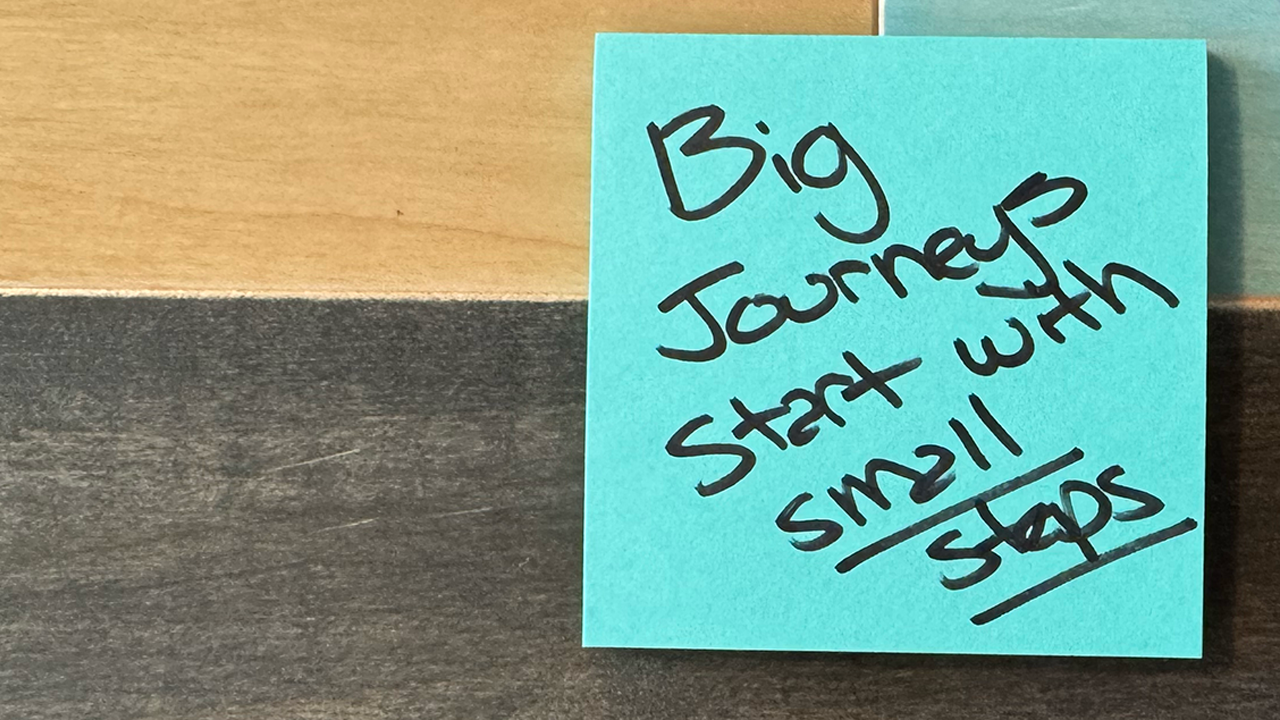 Big
Journeys
Start with
small
steps